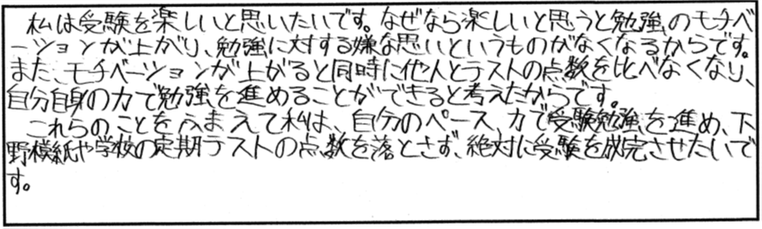 私は受験を楽しいと思いたいです。なぜなら楽しいと思うと勉強のモチベ
ーションが上がり、勉強に対する嫌な思いというものがなくなるからです。
また、モチベーションが上がると同時に他人とテストの点数を比べなくなり、
自分自身の力で勉強を進めることができると考えたからです。
これらのことをふまえて私は、自分のペース、力で受験勉強を進め、下
野模紙や学校の定期テストの点数を落とさず、絶対に受験を成完させたいで
す。